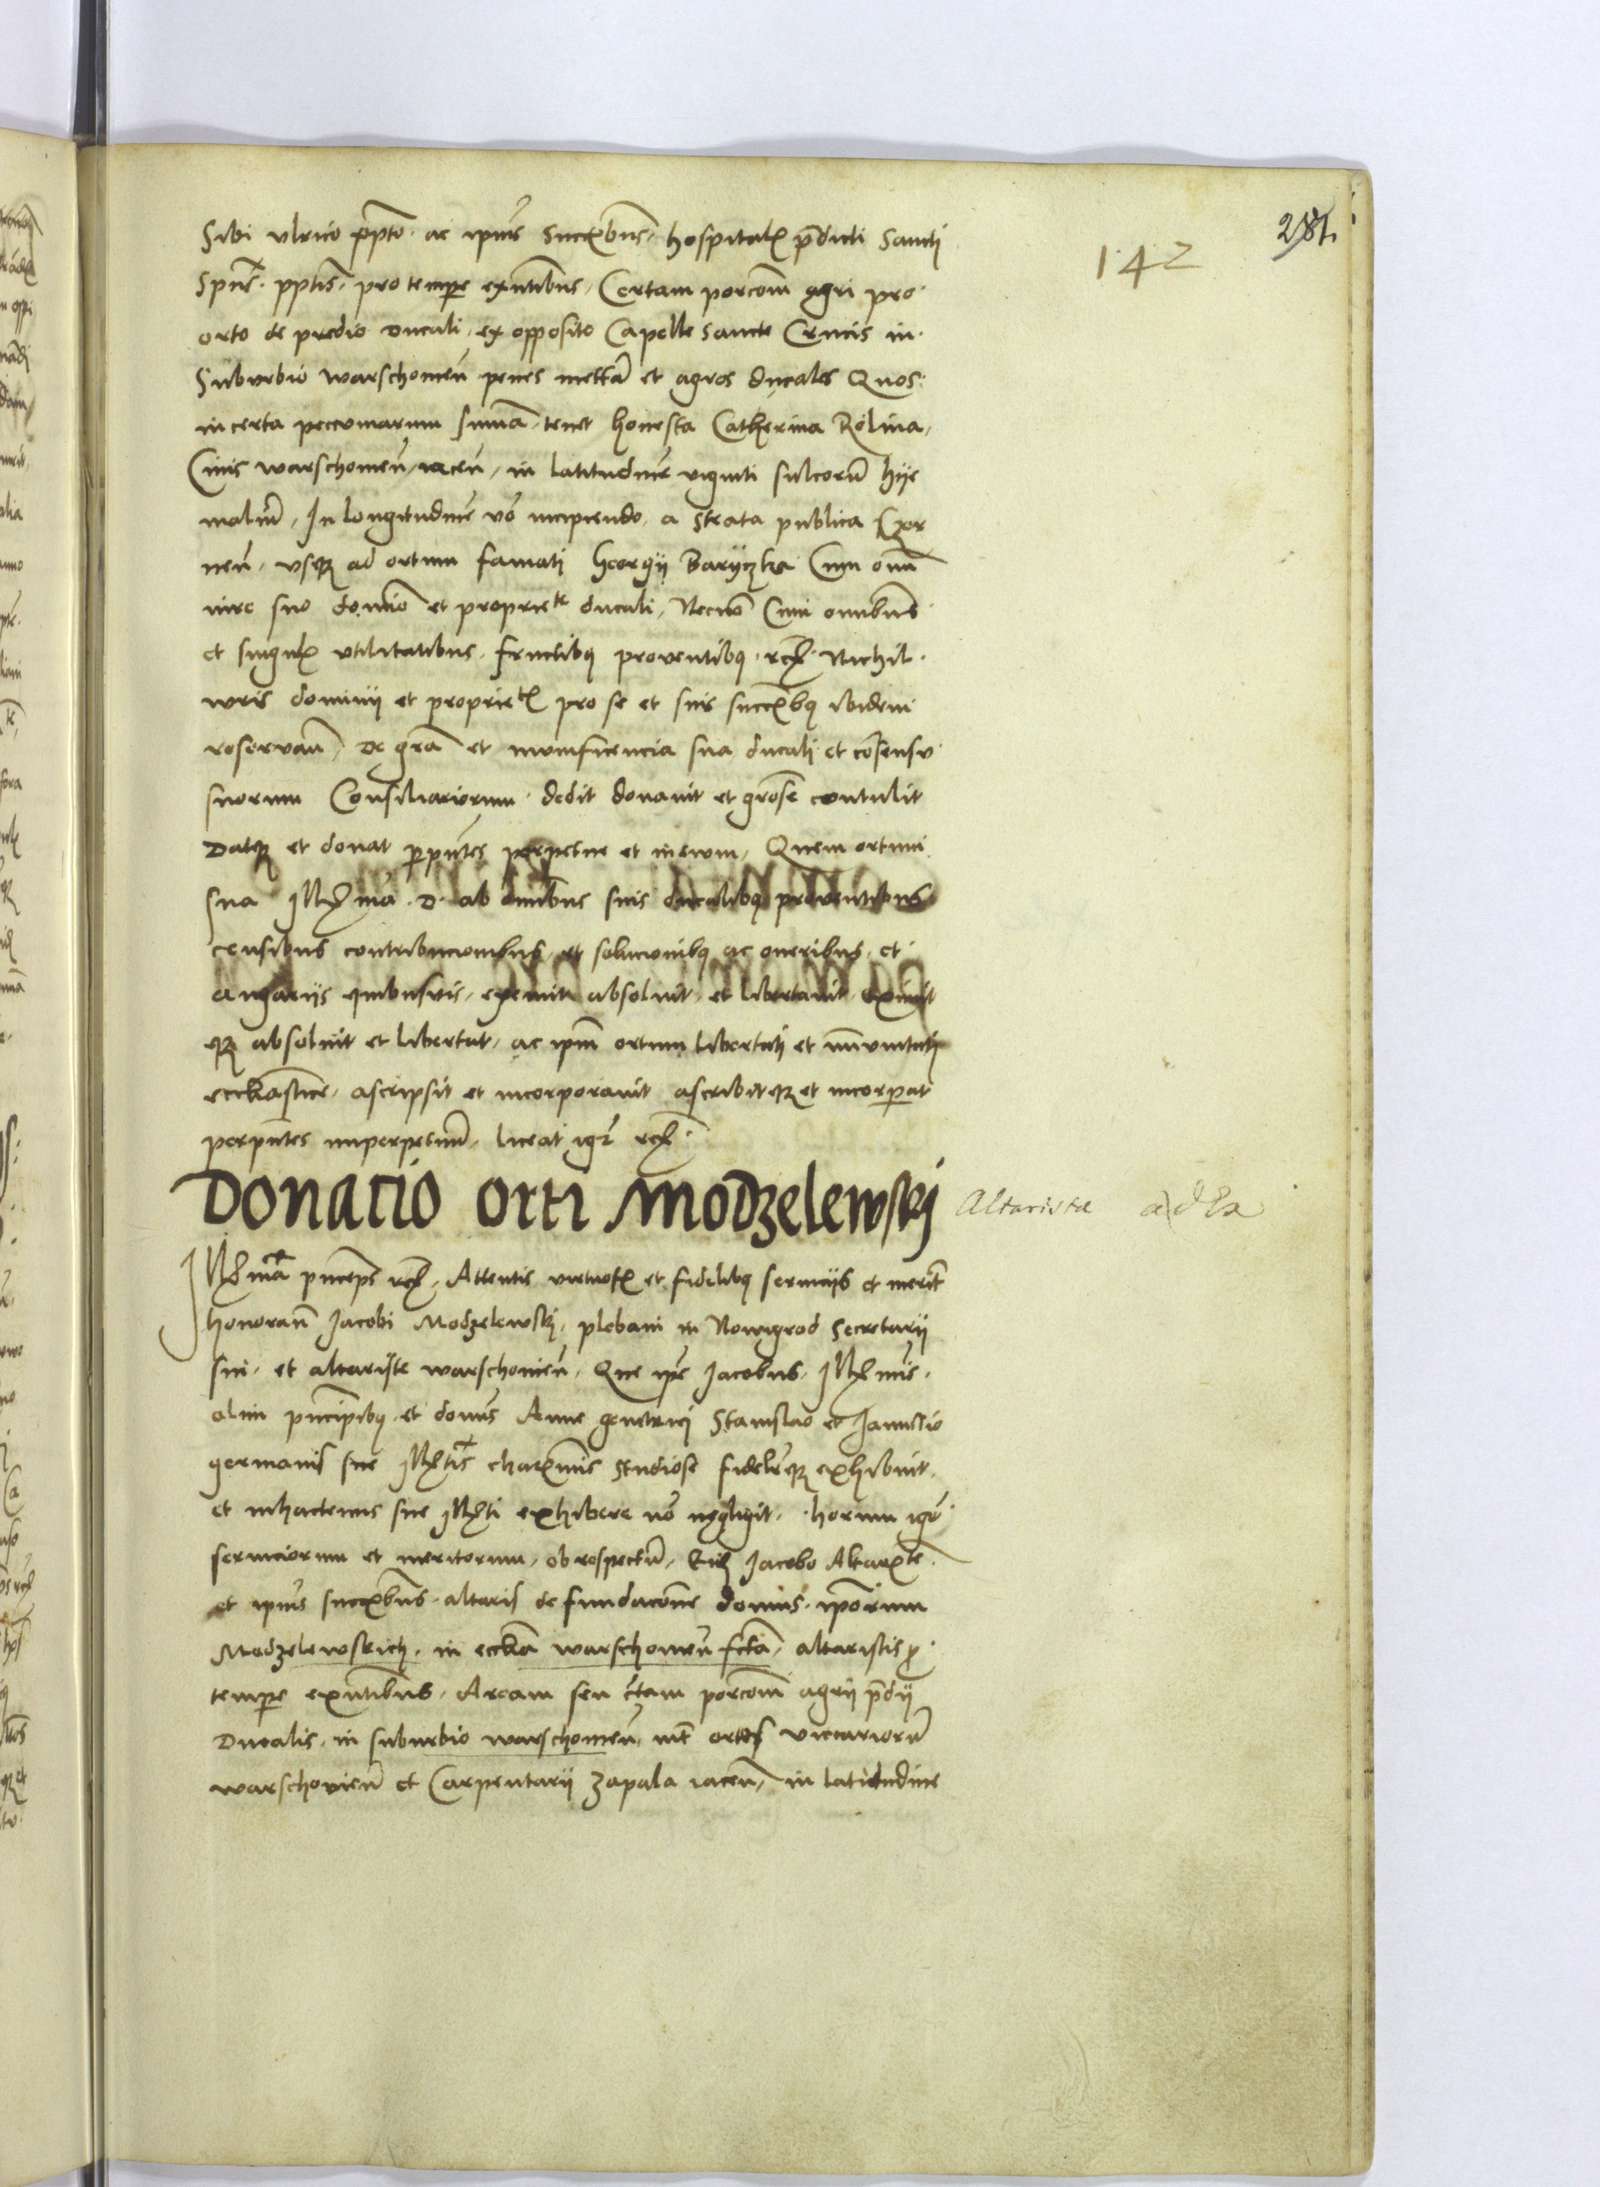 281.
142
Sibi Ulrico ppto. ac ipius Succrbus, hospitalr pdicti Sancti
Spus. pptis. pro tempe exntibus, Certam porcom agri pro
orto de predio Ducali, ex opposito Capelle Sancte Crucis in
Suburbio Warschomen penes metta et agros ducales Quos
in certa peccuniarum suma, tenet honesta Catherina Rolina,
Civis warschomen, iacen, in latitudine viginti sulcoru hye
maliu, In longitudine vo incipiendo, a strata publica Czer
nen, usqz ad ortum famati Georgii Baryczka Cum omi
iure suo domio et propriette ducali, Necno Cum omibus
et singulr utilitatibus, fructibq proventibq rcz. Nichil
iuris dominij et proprietr pro se et suis succrbq ibidem
reservan, De gra et munificencia sua ducali et cosensu
suorum Consiliariorum dedit donavit et grose contulit
Datqz et donat p pntes perpetue et in evum, Quem ortum
sua Illma. D. ab omibus suis ducalibq proventibus
censibus contribucionibus et solucionibq ac oneribus, et
angariis quibusvis, exemit absolvit, et libertavit, eximit
qz absolvit et libertat, ac ipm ortum libertati et imunitati
eccliastice, ascripsit et incorporavit ascribitqz et incorpat
per pntes imperpetuu, liceat igr rcz.
Donatio orti Modzelewskj
Altarista
Illma princeps rcz, Attentis virtuosr et fidelibq serviciis et merit
honoran Jacobi Modzelewskj, plebani in Nowigrod Secretarij
sui, et altariste warschomen, Que ipe Jacobus, Illmis,
olim principibq, et domis Anne genetrici Stanislao et Janussio
germanis sue Illtis charmis studiose fidelrqz exhibuit,
et in hactenus sue Illti exhibere no negligit, horum igr
serviciorum et meritorum, ob respectu, Eidz Jacobo Altarte.
et ipius succrbus, altaris de fundacone domus, iporum
Modzelewskich, in eccla warschomen fcta, altaristis p
tempe exntibus, Aream seu ctam porcom agrij pdij
Ducalis, in suburbio warschomen, int ortos vicarioru
warschovien et Carpentarij Zapala iacen, in latitudine